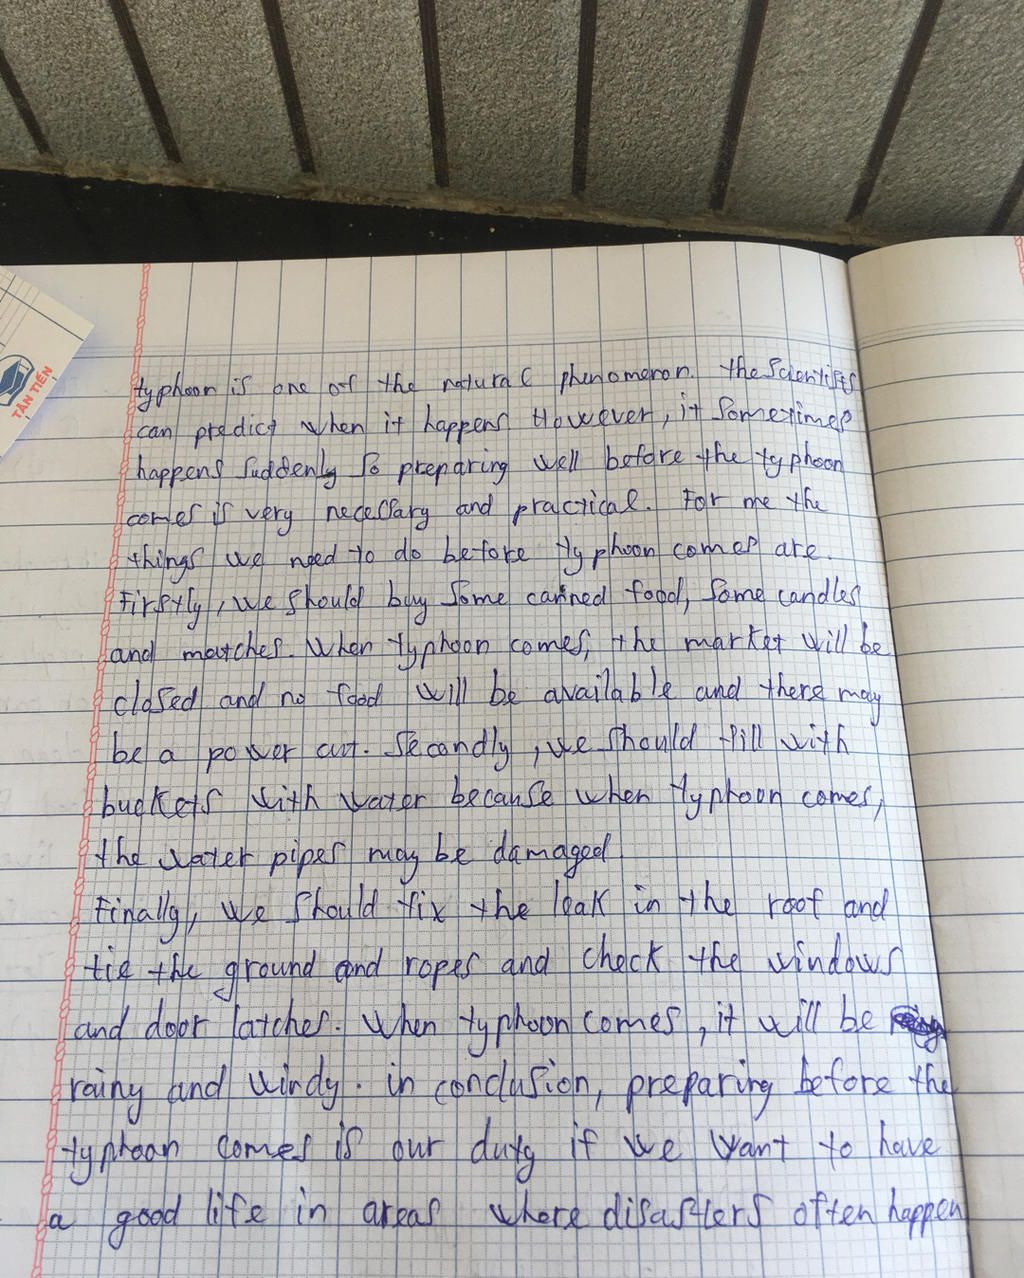 TÂN TIẾN
typhoon is one of the natural phenomenon. the scientists
can predict when it happens However, it sometimes
happens suddenly so preparing well before the typhoon
comes is very necessary and practical. For me the
things we need to do before typhoon comes are.
Firstly, we should buy some canned food, some candles
and matches. When typhoon comes, the market will be
closed and no food will be available and there may
be a power cut. Secondly, we should fill with
buckets with water because when typhoon comes,
the water pipes may be damaged
Finally, we should fix the leak in the roof and
tie the ground and ropes and check the windows
and door latches. When typhoon comes, it will be
rainy and windy. in conclusion, preparing before the
typhoon comes is our duty if we want to have
a good life in areas where disasters often happen